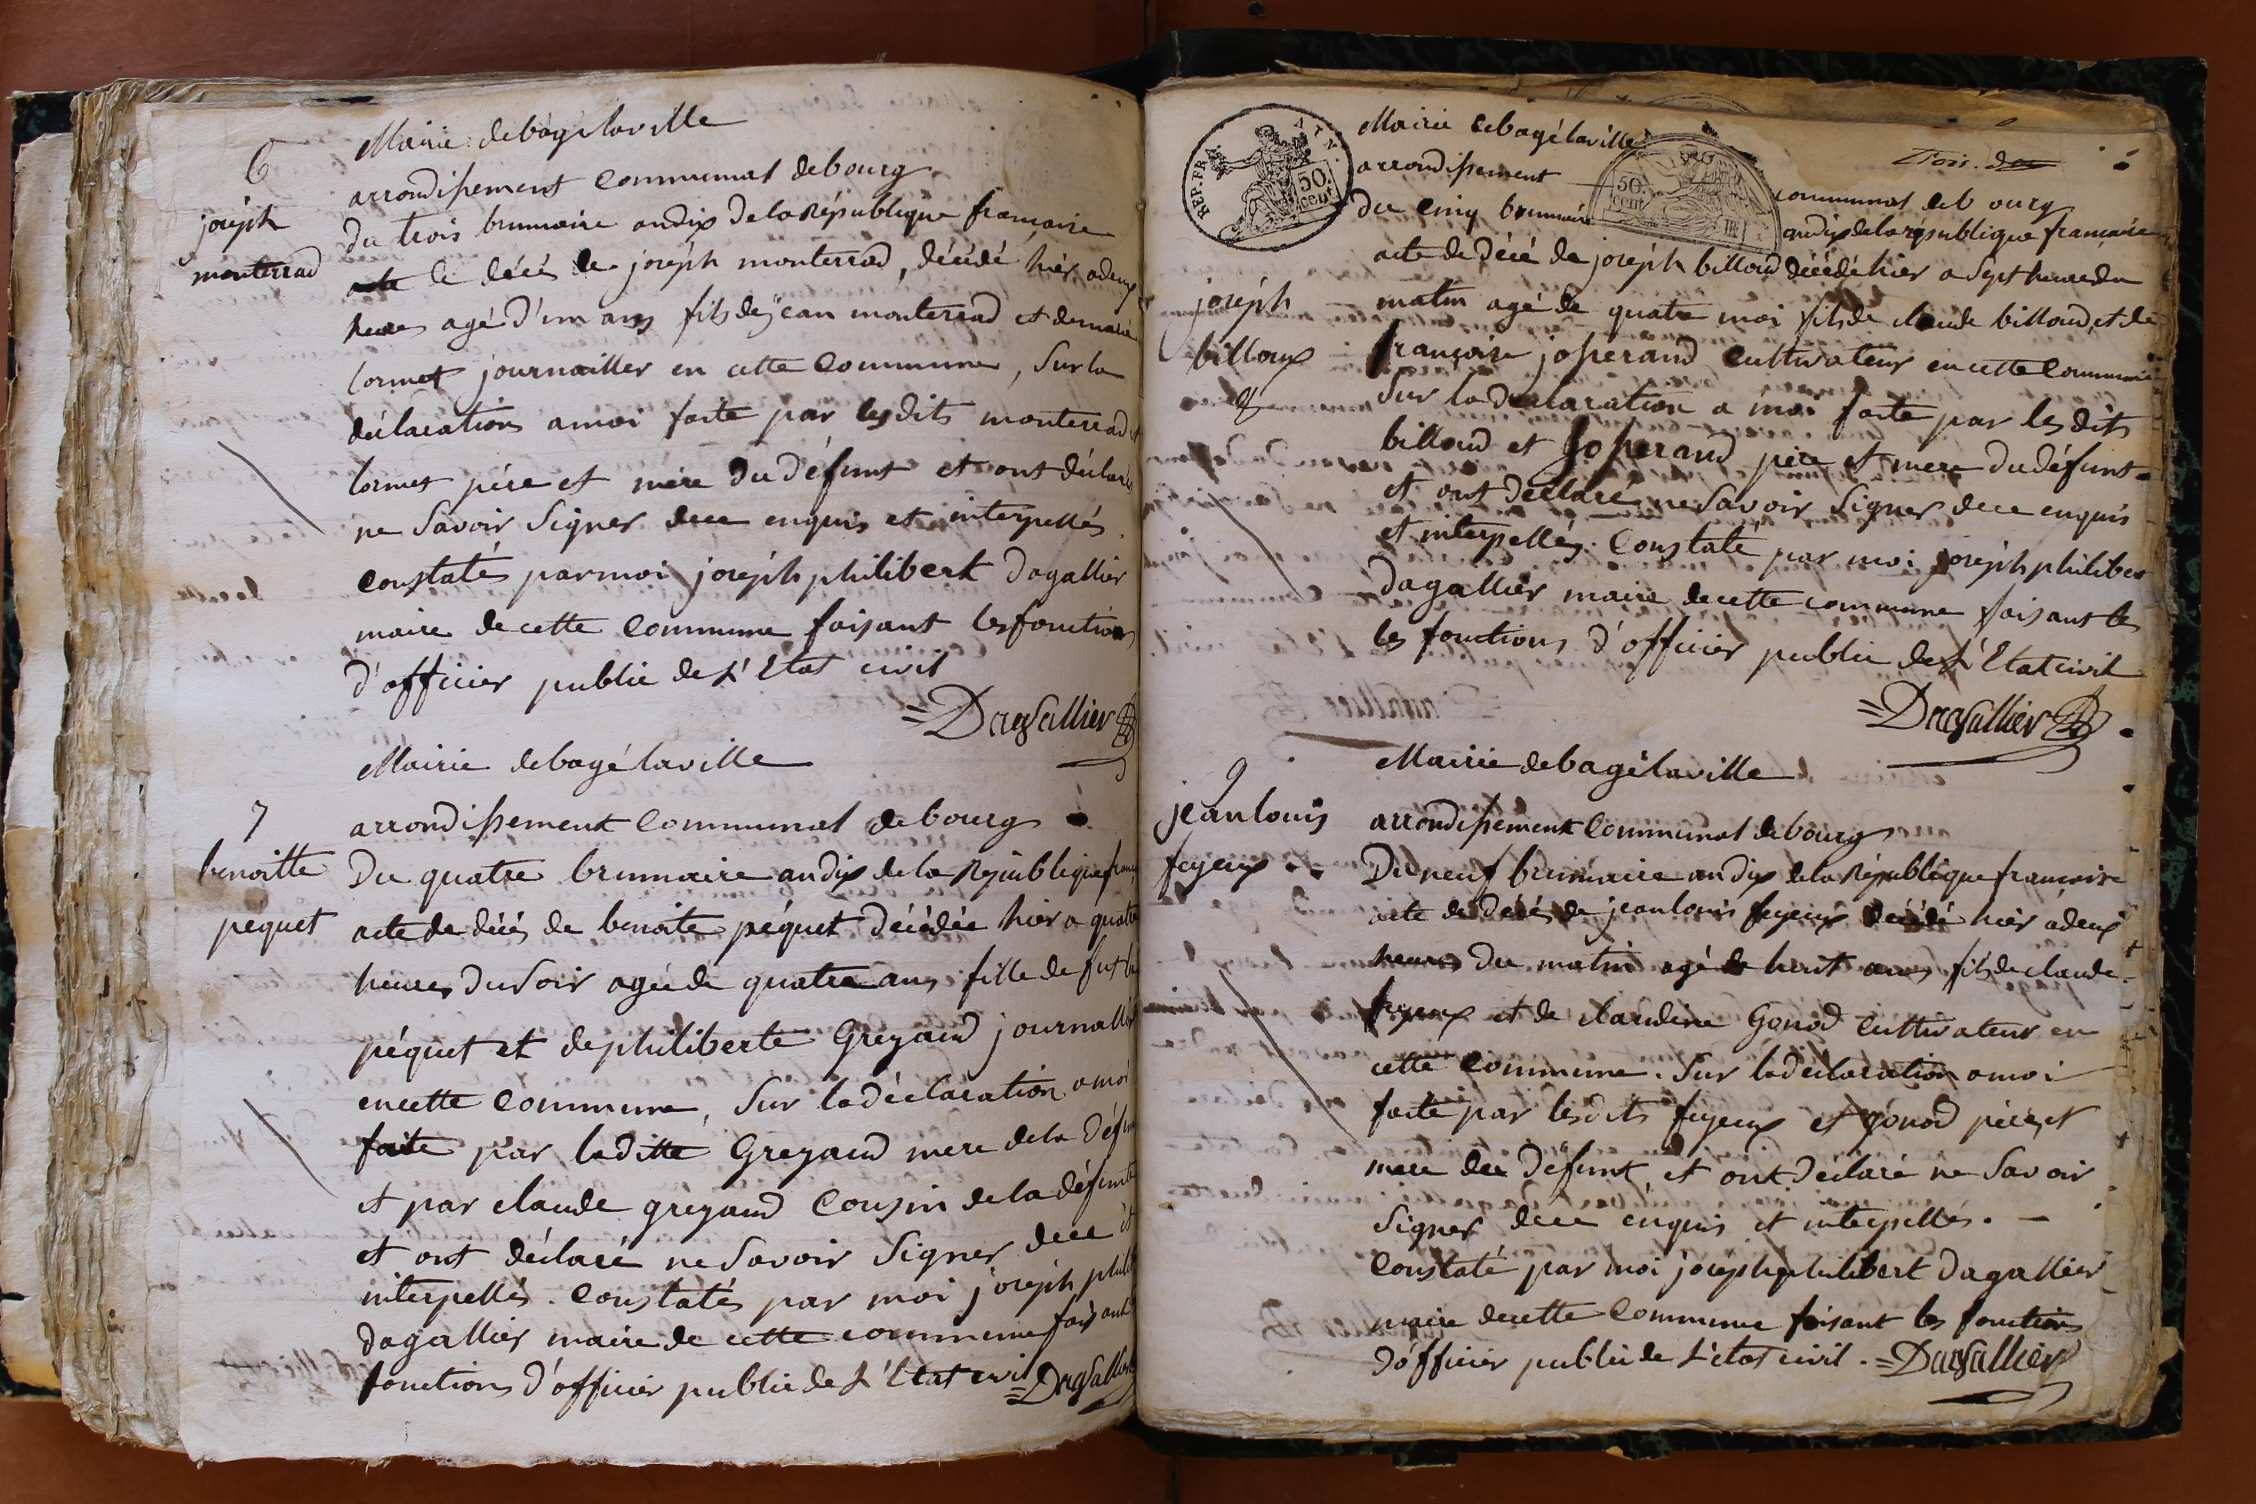 6
joséph
monterrad
Mairie de bagé la ville
arrondissement Communal de bourg
du trois brumaire an dix de la République francaise
acte de décé de joséph monterrad, décédé hier a deux
heures agé d'un ans fils de jean monterrad et de marie
Cormet journailler en cette Commune, Sur la
déclaration a moi faite par les dits monterrad et
Cormet pére et mére du défunt et ont déclarés
ne Savoir Signer de ce enquis et interpellés.
Constatés par moi joséph philibert dagallier
maire de cette Commune faisant les fonctions
d'officier public de L'Etat civil
=Dagallier
7
benoitte
péquet
Mairie de bagé la ville
arrondissement Communal de bourg
Du quatre brumaire an dix de la République franç
acte de décés de benoite péquet décédée hier a quatre
heures du Soir agée de quatre ans fille de fut
péquet et de philiberte Greyaud journallier
en cette Commune, Sur la déclaration a moi
faite par la ditte Greyaud mere de la défunte
et par claude greyaud Cousin de la défunte
et ont déclaré ne Savoir Signer de ce et
interpellés. Constatés par moi joséph philib
dagallier maire de cette commune faisant
fonctions d'officier public de L'Etat civil =Dagallier
REP. FRA. NAT.
50. cent.
50. cent.
Mairie de bagé la ville
arrondissement communal de bourg
du cinq brumaire an dix de la république francaise
joséph
billoux
8
acte de décé de joséph billoud décédé hier a Sept heure du
matin agé de quatre moi fils de claude billoud, et de
françoise josserand Cultivateur en cette Commune
Sur la déclaration a moi faite par les dits
billoud et Josserand pére et mere du défunt
et ont déclaré ne Savoir Signer de ce enquis
et interpellés. Constaté par moi joséph philiber
dagallier maire de cette commune faisant les
les fonctions d'officier public de L'Etat civil
=Dagallier
9
jean louis
feyeux
Mairie de bagé la ville
arrondissement Communal de bourg
Du neuf brumaire an dix de la République francaise
acte de décés de jean louis feyeux décédé hier a deux
heures du matin agé de huit ans fils de claude
feyeux et de claudine Gonod cultivateur en
cette Commune. Sur la déclaration a moi
faite par les dits feyeux et gonod pére et
mere du défunt, et ont déclaré ne Savoir
Signer de ce enquis et interpellés.
Constaté par moi joséph philibert dagallier
maire de cette Commune faisant les fonctions
d'officier public de L'état civil. =Dagallier